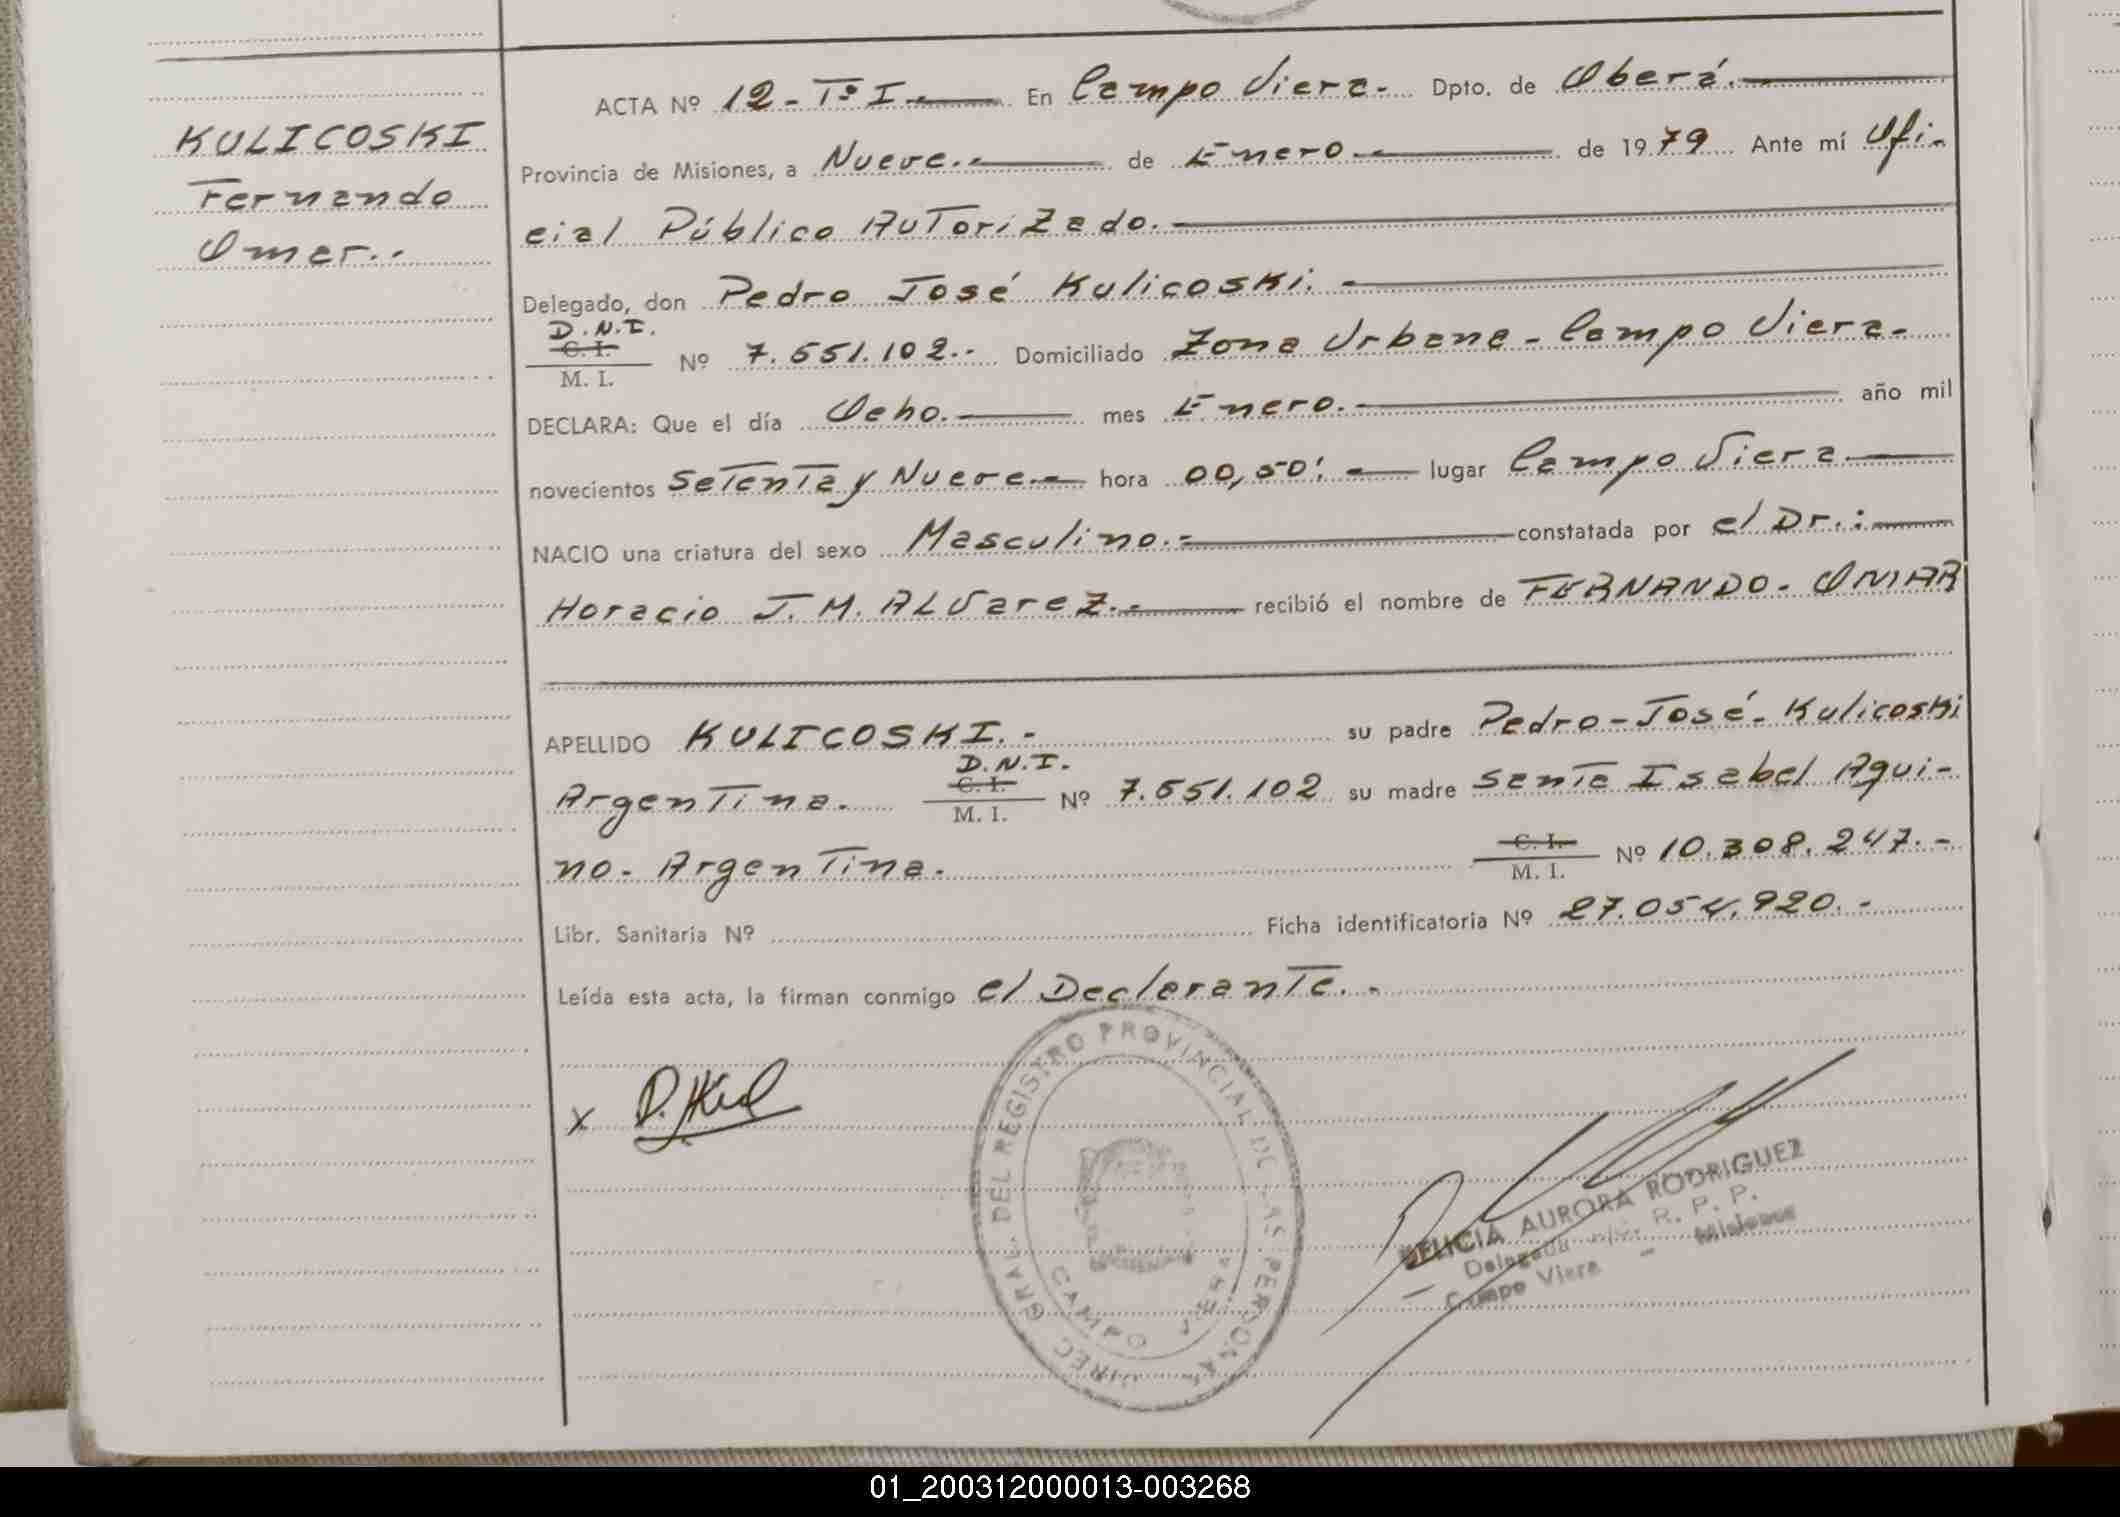 KULICOSKI
Fernando
Omar.-
ACTA Nº 12 - Tº I.- En Campo Viera.- Dpto. de Oberá.-
Provincia de Misiones, a Nueve.- de Enero.- de 1979 Ante mí Ofi-
cial Público AuTorizado.-
Delegado, don Pedro José Kulicoski.-
D.N.I.
C. I.
M. I.
Nº 7.551.102.- Domiciliado Zona Urbana - Campo Viera.-
DECLARA: Que el día Ocho.- mes Enero.- año mil
novecientos SeTenTa y Nueve.- hora 00,50'.- lugar Campo Viera.-
NACIO una criatura del sexo Masculino.- constatada por el Dr.:
Horacio J. M. ALVarez.- recibió el nombre de FERNANDO - OMAR
APELLIDO KULICOSKI.- su padre Pedro - José - Kulicoski
D.N.I.
ArgenTina. C. I. M. I. Nº 7.551.102 su madre SanTa Isabel Aqui-
no - ArgenTina. C. I. M. I. Nº 10.308.247.-
Libr. Sanitaria Nº Ficha identificatoria Nº 27.054.920.-
Leída esta acta, la firman conmigo el DeclaranTe.-
X
DIREC. GRAL. DEL REGISTRO PROVINCIAL DE LAS PERSONAS
CAMPO VIERA
DELICIA AURORA RODRIGUEZ
Delegada R. P. P.
Campo Viera - Misiones
01_200312000013-003268